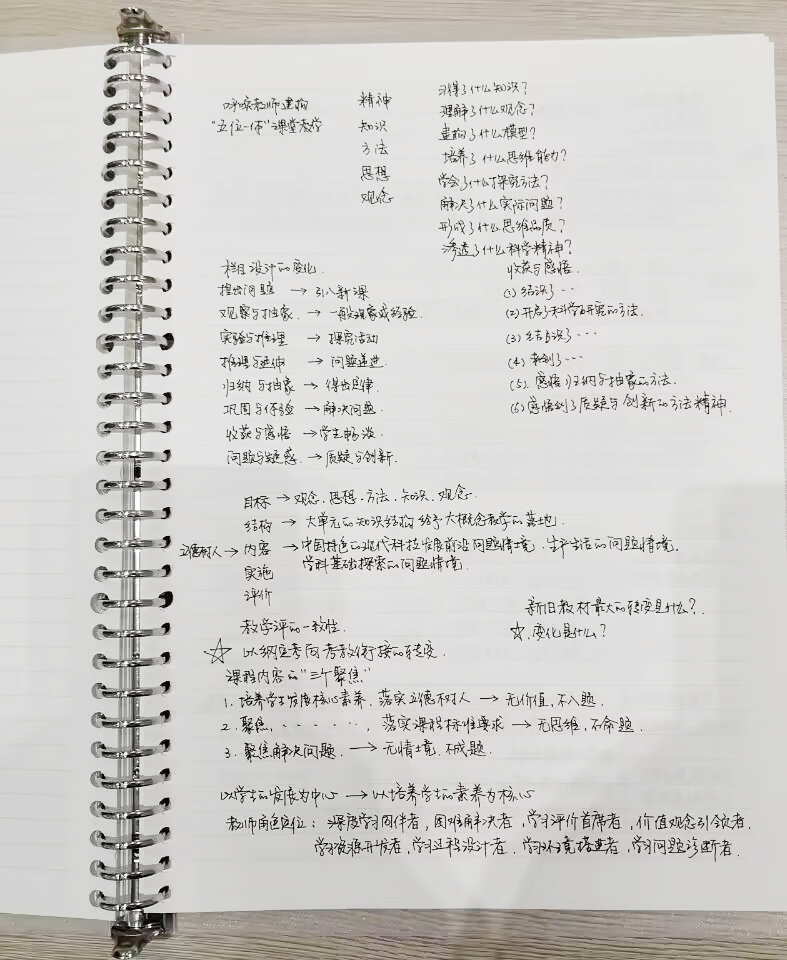 呼唤教师建构
“五位一体”课堂教学
精神
知识
方法
思想
观念
习得了什么知识？
理解了什么观念？
建构了什么模型？
培养了什么思维能力？
学会了什么探究方法？
解决了什么实际问题？
形成了什么思维品质？
渗透了什么科学精神？
栏目设计的变化.
提出问题 → 引入新课
观察与抽象. → 一般观察或经验.
实验与推理 → 探究活动
推理与延伸 → 问题递进.
归纳与抽象 → 得出规律.
巩固与体验 → 解决问题.
收获与感悟 → 学生畅谈
问题与疑惑. → 质疑与创新.
收获与感悟.
(1) 结识了···
(2) 开启了科学研究的方法.
(3) 结识了···
(4)
(5). 感悟归纳与抽象的方法.
(6) 感悟到了质疑与创新的方法精神.
目标 → 观念.思想.方法.知识.观念.
结构 → 大单元的知识结构给予大概念教学的落地.
立德树人 → 内容 → 中国特色的现代科技发展前沿问题情境.生产生活的问题情境.
学科基础探索的问题情境.
实施
评价
教学评的一致性.
新旧教材最大的转变是什么？
☆.变化是什么？
☆ 以纲定考向考教衔接的转变.
课程内容的“三个聚焦”
1. 培养学生发展核心素养.落实立德树人 → 无价值,不入题.
2. 聚焦,······, 落实课程标准要求 → 无思维,不命题.
3. 聚焦解决问题. → 无情境,不成题.
以学生的发展为中心 → 以培养学生的素养为核心
教师角色定位: 深度学习同伴者,困难解决者,学习评价首席者,价值观念引领者.
学习资源开发者,学习过程设计者.学习环境搭建者,学习问题诊断者.